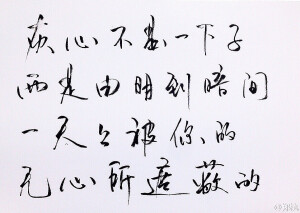 灰心不是一下子
而是由明到暗间
一天天被你、的
无心所遮蔽的